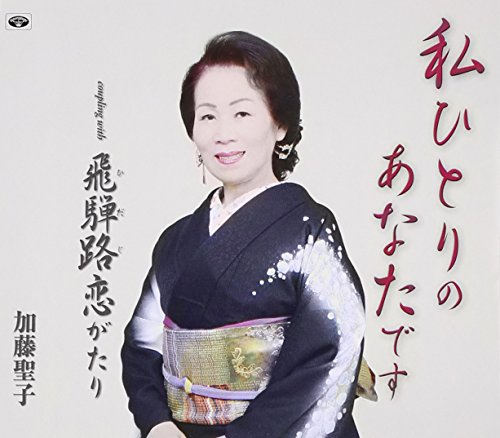 私ひとりの
あなたです
coupling with
飛騨路恋がたり
ひだじ
加藤聖子